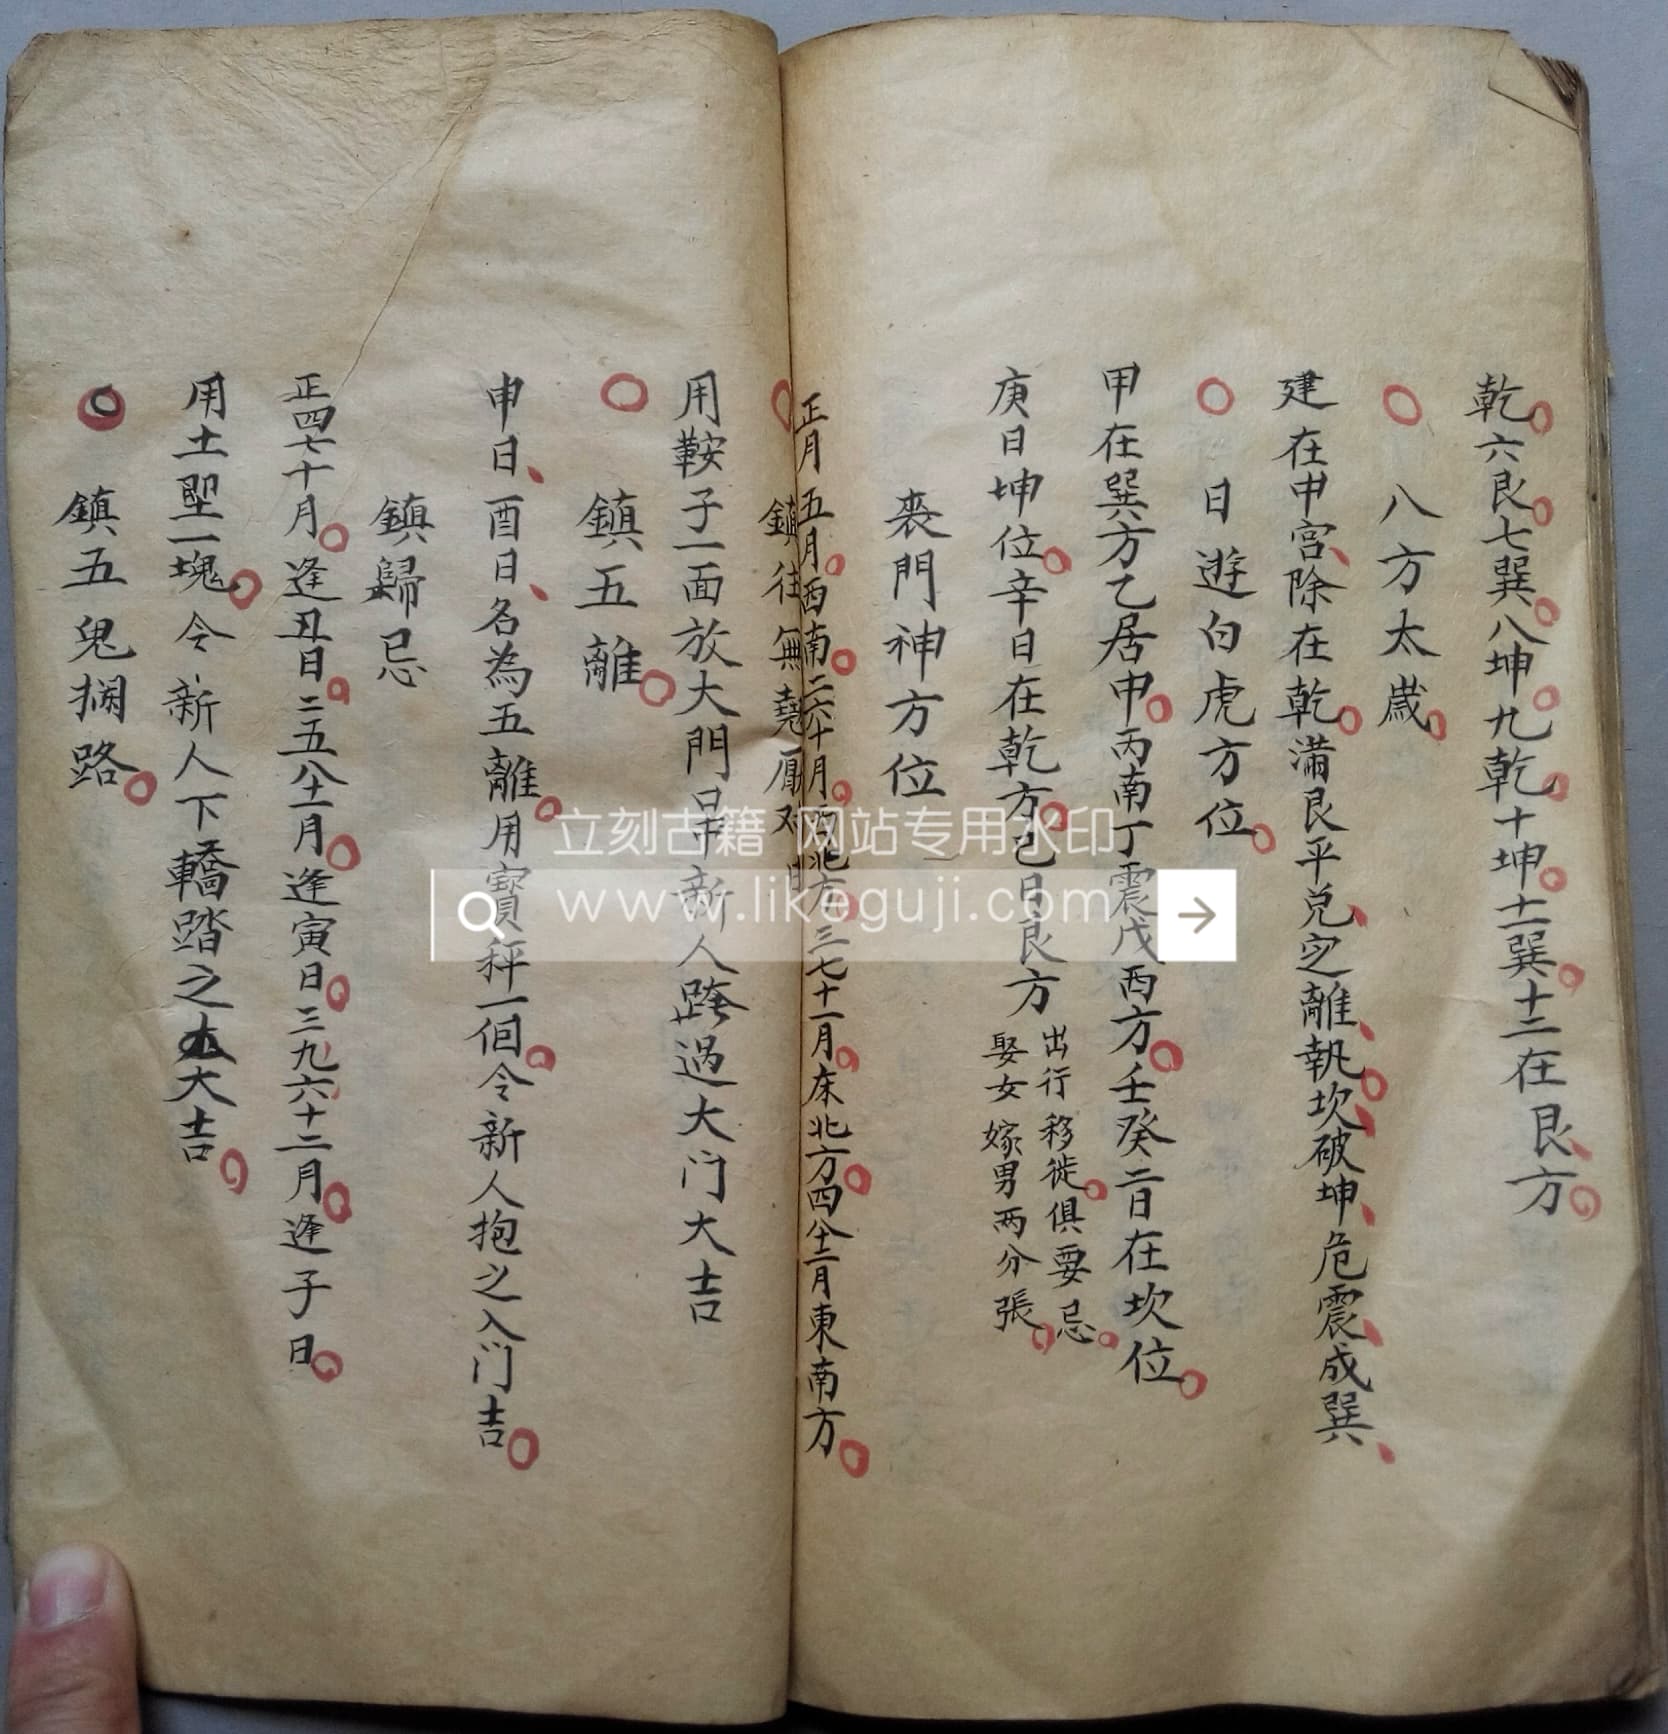 乾六艮七巽八坤九乾十坤十一巽十二在艮方
八方太歲
建在中宮除在乾滿艮平兌定離執坎破坤危震成巽
日遊白虎方位
甲在巽方乙居中丙南丁震戊西方壬癸二日在坎位
庚日坤位辛日在乾方己日艮方
出行移徙俱要忌
娶女嫁男两分張
喪門神方位
正月五月西南二六十月西北方三七十一月東北方四八十二月東南方
鎮往無堯厲对日
用鞍子一面放大門口中新人跨過大门大吉
鎮五離
申日酉日名為五離用寳秤一個令新人抱之入门吉
鎮歸忌
正四七十月逢丑日二五八十一月逢寅日三九六十二月逢子日
用土墼一塊令新人下轎踏之大吉
鎮五鬼攔路
立刻古籍 网站专用水印
www.likeguji.com